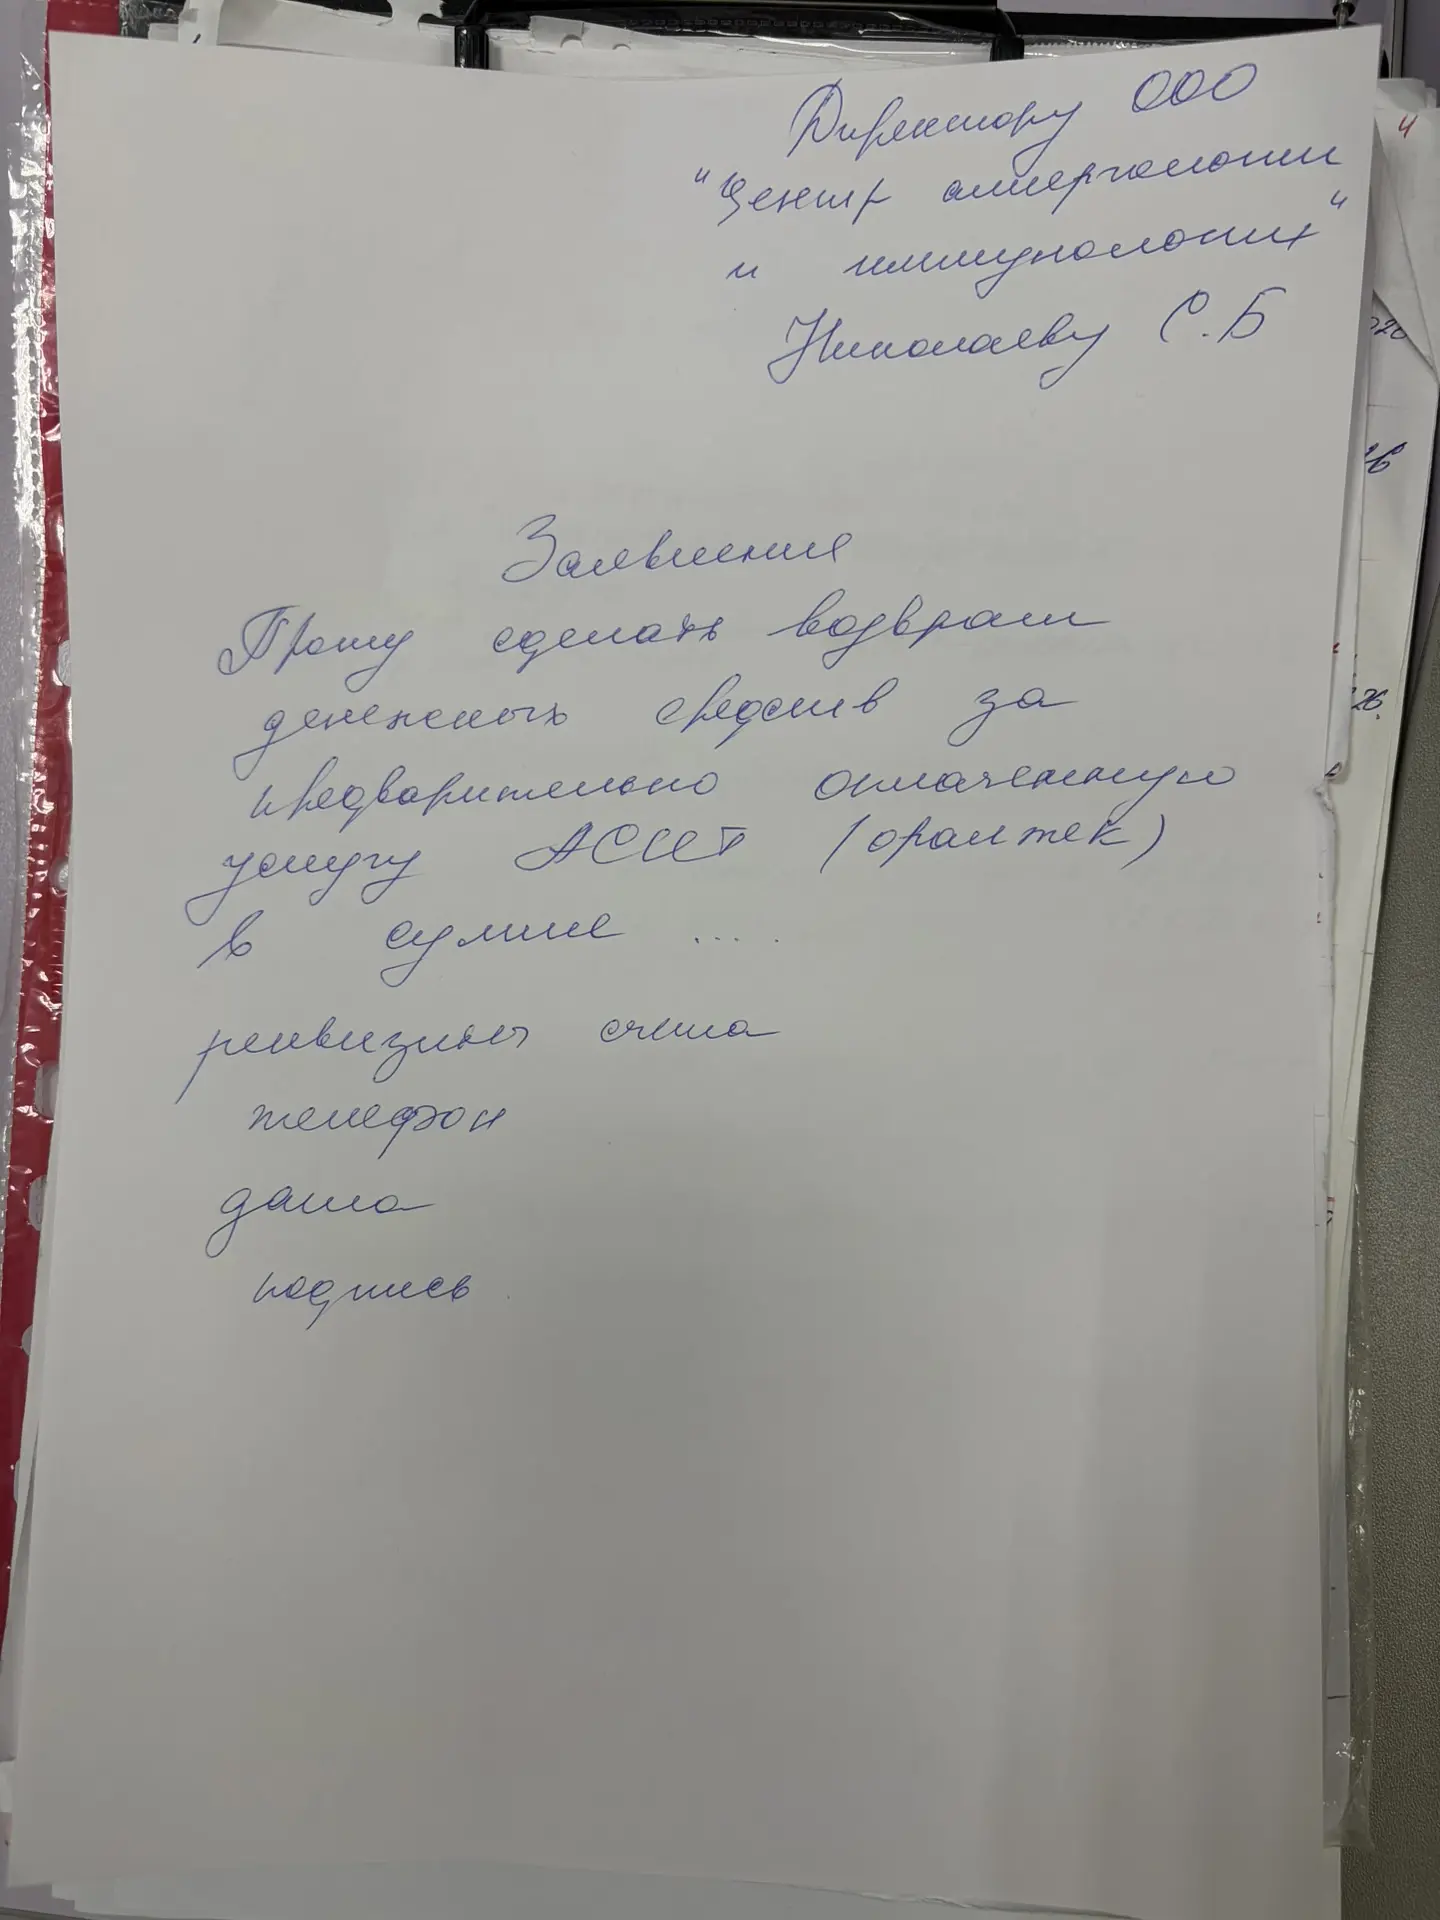 Директору ООО
"Центр аллергологии
и иммунологии"
Николаеву С.Б
Заявление
Прошу сделать возврат
денежных средств за
предварительно оплаченную
услугу АСИТ (оралтек)
в сумме ....
реквизиты счета
телефон
дата
подпись